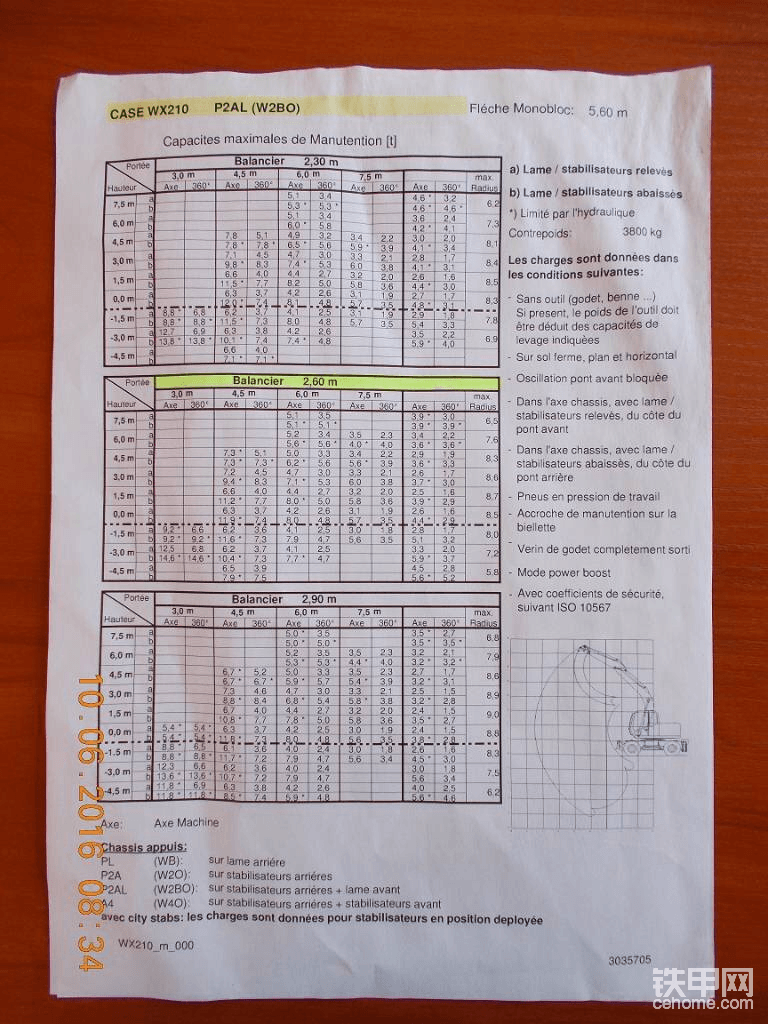 CASE WX210 P2AL (W2BO) Fléche Monobloc: 5,60 m
Capacites maximales de Manutention [t]
Portée Balancier 2,30 m
3,0 m 4,5 m 6,0 m 7,5 m max.
Hauteur Axe 360° Axe 360° Axe 360° Axe 360° Axe 360° Radius
7,5 m a 5,1 3,4 4,6 * 3,2 6,2
b 5,3 * 5,3 * 4,6 * 4,6 *
6,0 m a 5,1 3,4 3,6 2,4 7,3
b 6,0 * 5,8 4,2 * 4,1
4,5 m a 7,8 5,1 4,9 3,2 3,4 2,2 3,0 2,0 8,1
b 7,8 * 7,8 * 6,5 * 5,6 5,9 * 3,9 4,1 * 3,4
3,0 m a 7,1 4,5 4,7 3,0 3,3 2,1 2,8 1,7 8,4
b 9,8 * 8,3 7,4 * 5,3 6,0 3,8 4,1 * 3,1
1,5 m a 6,6 4,0 4,4 2,7 3,2 2,0 2,6 1,6 8,5
b 11,5 * 7,7 8,2 5,0 5,8 3,6 4,4 * 3,0
0,0 m a 6,3 3,7 4,2 2,6 3,1 1,9 2,7 1,7 8,3
b 12,0 * 7,4 8,1 4,8 5,7 3,5 4,8 * 3,1
-1,5 m a 8,8 * 6,8 6,2 3,7 4,1 2,5 3,1 1,9 2,9 1,8 7,8
b 8,8 * 8,8 * 11,5 * 7,3 8,0 4,8 5,7 3,5 5,4 3,3
-3,0 m a 12,7 6,9 6,3 3,8 4,2 2,6 3,5 2,2 6,9
b 13,8 * 13,8 * 10,1 * 7,4 7,4 * 4,8 5,9 * 4,0
-4,5 m a 6,6 4,0
b 7,1 * 7,1 *
a) Lame / stabilisateurs relevès
b) Lame / stabilisateurs abaissès
*) Limité par l'hydraulique
Contrepoids: 3800 kg
Les charges sont données dans
les conditions suivantes:
- Sans outil (godet, benne ...)
Si present, le poids de l'outil doit
être déduit des capacités de
levage indiquées
- Sur sol ferme, plan et horizontal
- Oscillation pont avant bloquée
- Dans l'axe chassis, avec lame /
stabilisateurs relevès, du côte du
pont avant
- Dans l'axe chassis, avec lame /
stabilisateurs abaissès, du côte du
pont arrière
- Pneus en pression de travail
- Accroche de manutention sur la
biellette
Verin de godet completement sorti
- Mode power boost
- Avec coefficients de sécurité,
suivant ISO 10567
Portée Balancier 2,60 m
3,0 m 4,5 m 6,0 m 7,5 m max.
Hauteur Axe 360° Axe 360° Axe 360° Axe 360° Axe 360° Radius
7,5 m a 5,1 3,5 3,9 * 3,0 6,5
b 5,1 * 5,1 * 3,9 * 3,9 *
6,0 m a 5,2 3,4 3,5 2,3 3,4 2,2 7,6
b 5,6 * 5,6 * 4,0 * 4,0 3,6 * 3,6 *
4,5 m a 7,3 * 5,1 5,0 3,3 3,4 2,2 2,9 1,9 8,3
b 7,3 * 7,3 * 6,2 * 5,6 5,6 * 3,9 3,6 * 3,3
3,0 m a 7,2 4,5 4,7 3,0 3,3 2,1 2,6 1,7 8,6
b 9,4 * 8,3 7,1 * 5,3 6,0 3,8 3,7 * 3,0
1,5 m a 6,6 4,0 4,4 2,7 3,2 2,0 2,5 1,6 8,7
b 11,2 * 7,7 8,0 * 5,0 5,8 3,6 3,9 * 2,9
0,0 m a 6,3 3,7 4,2 2,6 3,1 1,9 2,6 1,6 8,5
b 11,9 * 7,4 8,0 4,8 5,7 3,5 4,4 * 2,9
-1,5 m a 9,2 * 6,6 6,2 3,6 4,1 2,5 3,0 1,8 2,8 1,7 8,0
b 9,2 * 9,2 * 11,6 * 7,3 7,9 4,7 5,6 3,5 5,1 3,2
-3,0 m a 12,5 6,8 6,2 3,7 4,1 2,5 3,3 2,0 7,2
b 14,6 * 14,6 * 10,4 * 7,3 7,7 * 4,7 5,9 * 3,7
-4,5 m a 6,5 3,9 4,5 2,8 5,8
b 7,9 * 7,5 5,6 * 5,2
Portée Balancier 2,90 m
3,0 m 4,5 m 6,0 m 7,5 m max.
Hauteur Axe 360° Axe 360° Axe 360° Axe 360° Axe 360° Radius
7,5 m a 5,0 * 3,5 3,5 * 2,7 6,8
b 5,0 * 5,0 * 3,5 * 3,5 *
6,0 m a 5,2 3,5 3,5 2,3 3,2 2,1 7,9
b 5,3 * 5,3 * 4,4 * 4,0 3,2 * 3,2 *
4,5 m a 6,7 * 5,2 5,0 3,3 3,5 2,3 2,7 1,7 8,6
b 6,7 * 6,7 * 5,9 * 5,7 5,4 * 3,9 3,2 * 3,1
3,0 m a 7,3 4,6 4,7 3,0 3,3 2,1 2,5 1,5 8,9
b 8,8 * 8,4 6,8 * 5,4 5,8 * 3,8 3,2 * 2,8
1,5 m a 6,7 4,0 4,4 2,7 3,2 2,0 2,4 1,5 9,0
b 10,8 * 7,7 7,8 * 5,0 5,8 3,6 3,5 * 2,7
0,0 m a 5,4 * 5,4 * 6,3 3,7 4,2 2,5 3,0 1,9 2,4 1,5 8,8
b 5,4 * 5,4 * 11,8 * 7,3 8,0 4,8 5,6 3,5 3,8 * 2,8
-1,5 m a 8,8 * 6,5 6,1 3,6 4,0 2,4 3,0 1,8 2,6 1,6 8,3
b 8,8 * 8,8 * 11,7 * 7,2 7,9 4,7 5,6 3,4 4,5 * 3,0
-3,0 m a 12,3 6,6 6,2 3,6 4,0 2,4 3,0 1,8 7,5
b 13,6 * 13,6 * 10,7 * 7,2 7,9 4,7 5,6 3,4
-4,5 m a 11,8 * 6,9 6,3 3,8 4,2 2,6 4,0 2,5 6,2
b 11,8 * 11,8 * 8,5 * 7,4 5,9 * 4,8 5,6 * 4,6
Axe: Axe Machine
Chassis appuis:
PL (WB): sur lame arriére
P2A (W2O): sur stabilisateurs arriéres
P2AL (W2BO): sur stabilisateurs arriéres + lame avant
A4 (W4O): sur stabilisateurs arriéres + stabilisateurs avant
avec city stabs: les charges sont données pour stabilisateurs en position deployée
WX210_m_000
3035705
10.06.2016 08:34
铁甲网
cehome.com